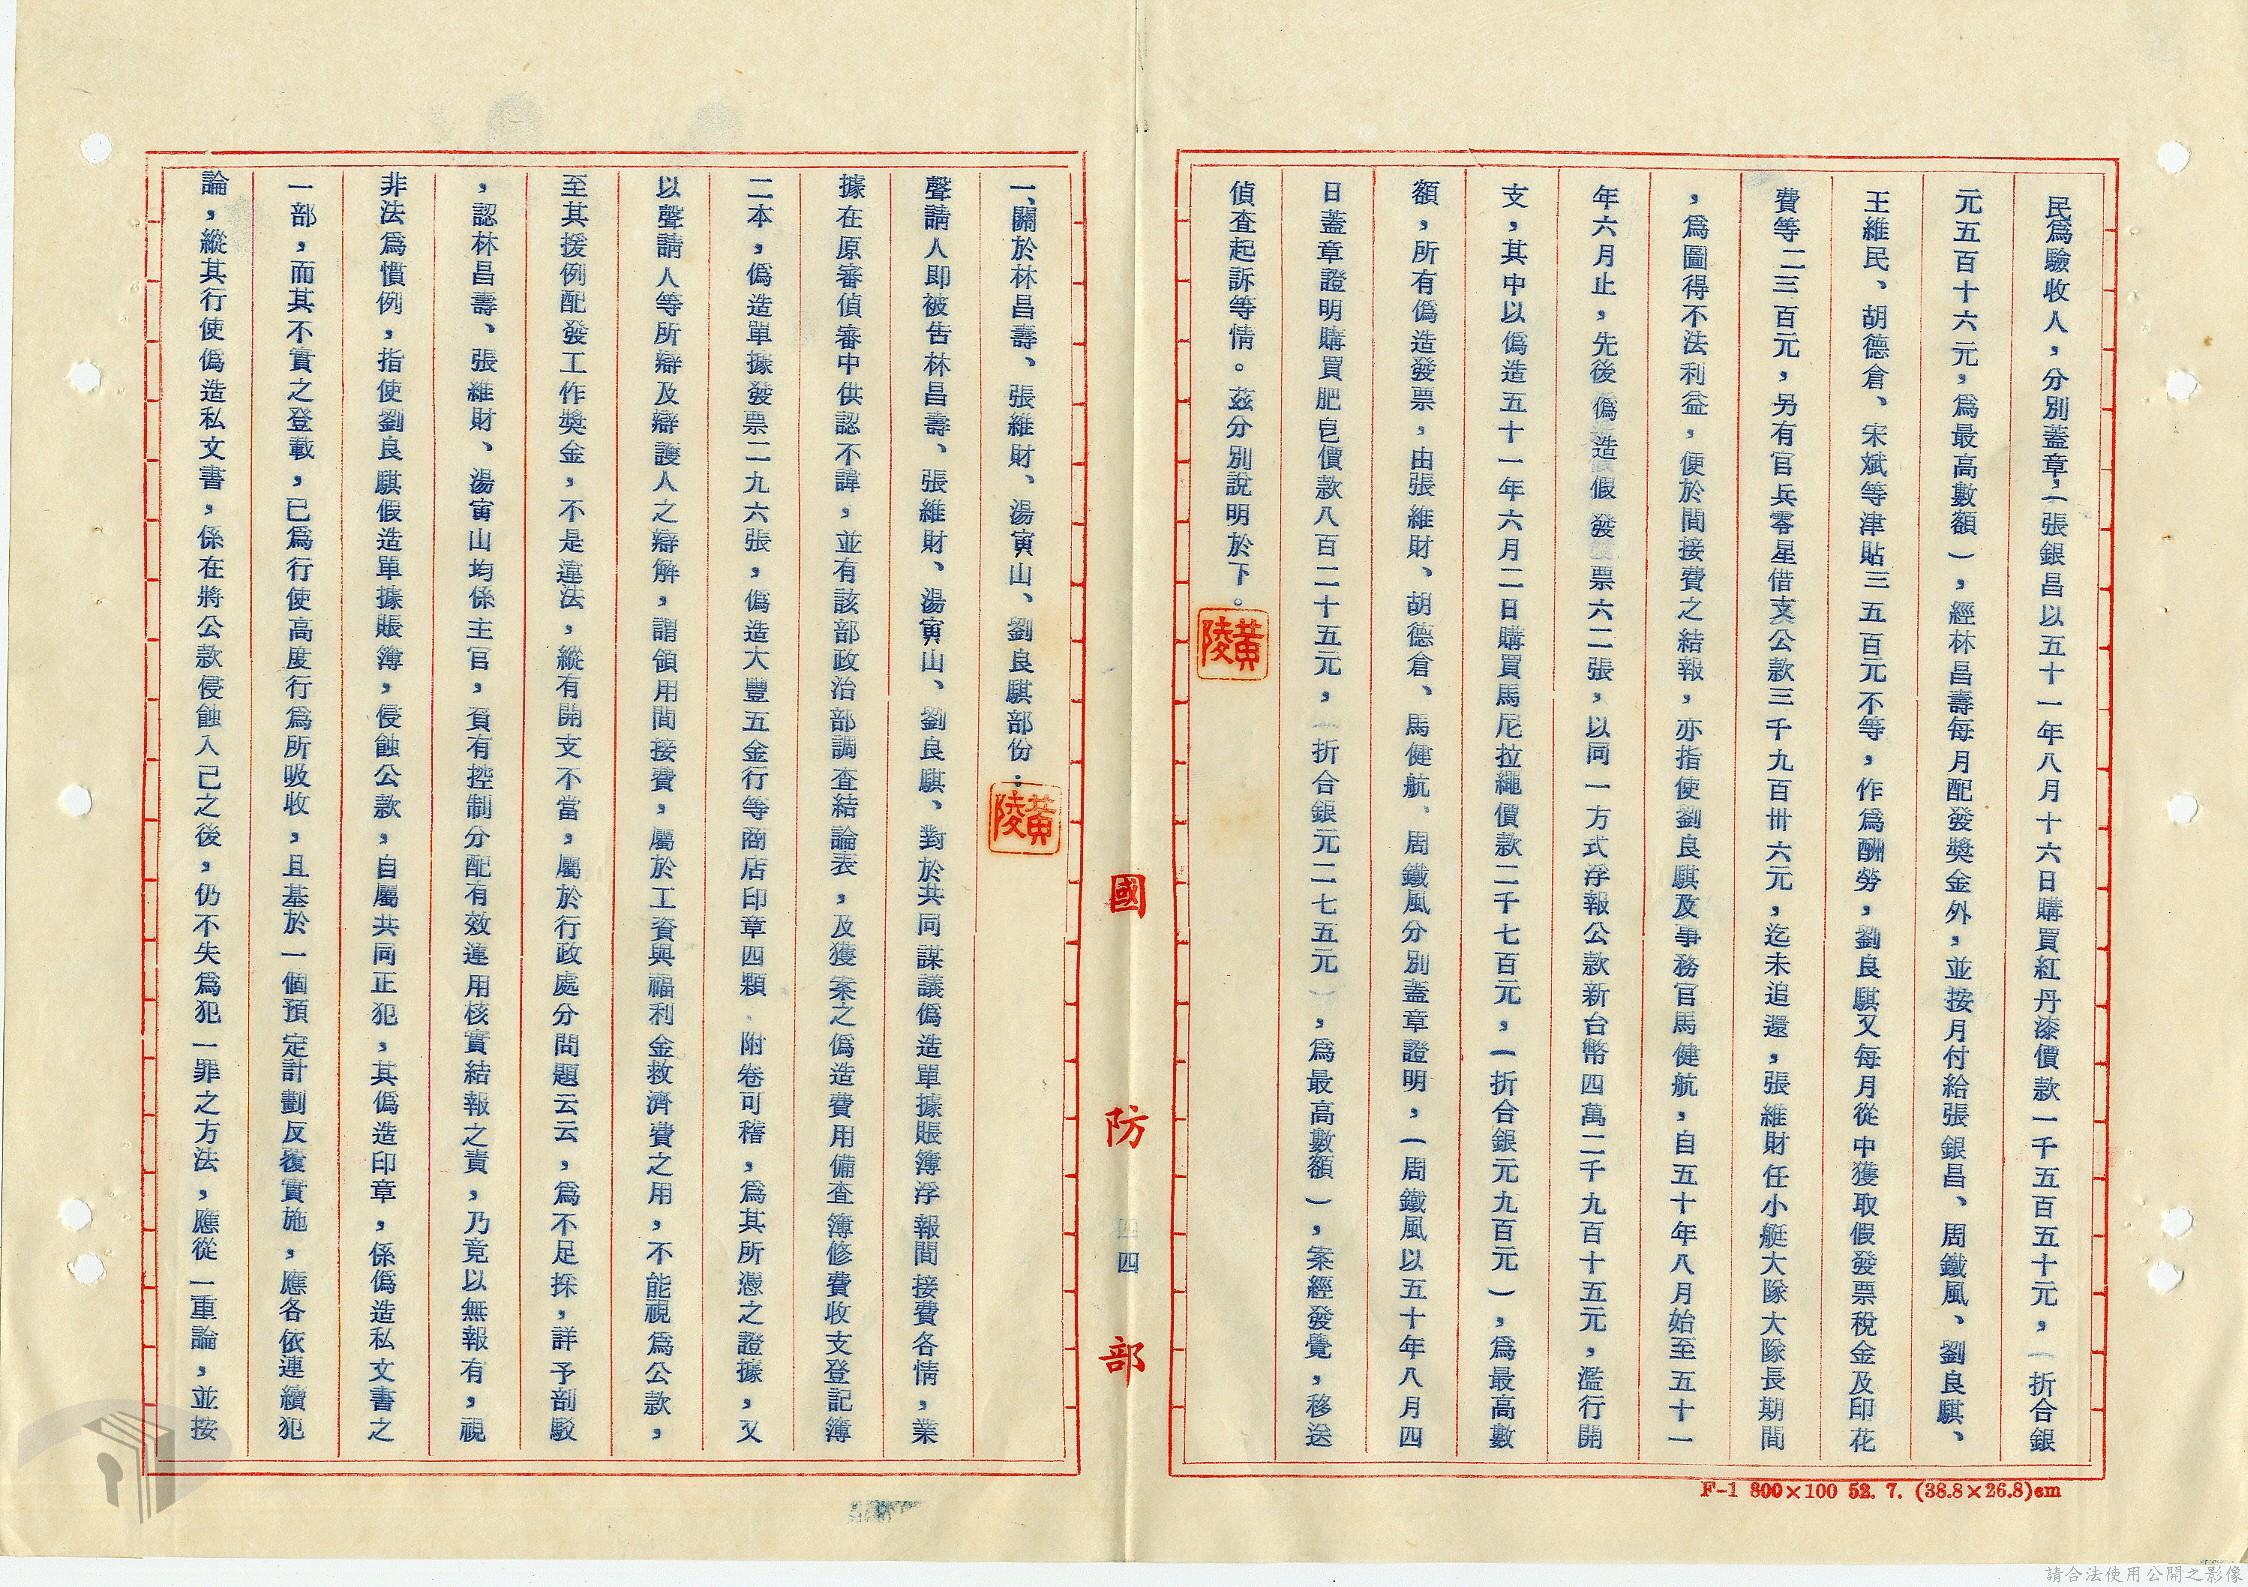 民爲驗收人，分別蓋章，（張銀昌以五十一年八月十六日購買紅丹漆價款一千五百五十元，（折合銀
元五百十六元，爲最高數額），經林昌壽每月配發獎金外，並按月付給張銀昌、周鐵風、劉良騏、
王維民、胡德倉、宋斌等津貼三五百元不等，作爲酬勞，劉良騏又每月從中獲取假發票稅金及印花
費等二三百元，另有官兵零星借支公款三千九百卅六元，迄未追還，張維財任小艇大隊大隊長期間
，爲圖得不法利益，便於間接費之結報，亦指使劉良騏及事務官馬健航，自五十年八月始至五十一
年六月止，先後僞造假發票六二張，以同一方式浮報公款新台幣四萬二千九百十五元，濫行開
支，其中以僞造五十一年六月二日購買馬尼拉繩價款二千七百元，（折合銀元九百元），爲最高數
額，所有僞造發票，由張維財、胡德倉、馬健航、周鐵風分別蓋章證明，（周鐵風以五十年八月四
日蓋章證明購買肥皂價款八百二十五元，（折合銀元二七五元），爲最高數額），案經發覺，移送
偵查起訴等情。茲分別說明於下。
黃陵
國防部
四
一、關於林昌壽、張維財、湯寅山、劉良騏部份：
黃陵
聲請人即被告林昌壽、張維財、湯寅山、劉良騏、對於共同謀議僞造單據賬簿浮報間接費各情，業
據在原審偵審中供認不諱，並有該部政治部調查結論表，及獲案之僞造費用備查簿修費收支登記簿
二本，僞造單據發票二九六張，僞造大豐五金行等商店印章四顆、附卷可稽，爲其所憑之證據，又
以聲請人等所辯及辯護人之辯解，謂領用間接費，屬於工資與福利金救濟費之用，不能視爲公款，
至其援例配發工作獎金，不是違法，縱有開支不當，屬於行政處分問題云云，爲不足採，詳予剖駁
，認林昌壽、張維財、湯寅山均係主官，負有控制分配有效運用核實結報之責，乃竟以無報有，視
非法爲慣例，指使劉良騏假造單據賬簿，侵蝕公款，自屬共同正犯，其僞造印章，係僞造私文書之
一部，而其不實之登載，已爲行使高度行爲所吸收，且基於一個預定計劃反覆實施，應各依連續犯
論，縱其行使僞造私文書，係在將公款侵蝕入己之後，仍不失爲犯一罪之方法，應從一重論，並按
F-1 800×100 52. 7. (38.8×26.8)cm
請合法使用公開之影像